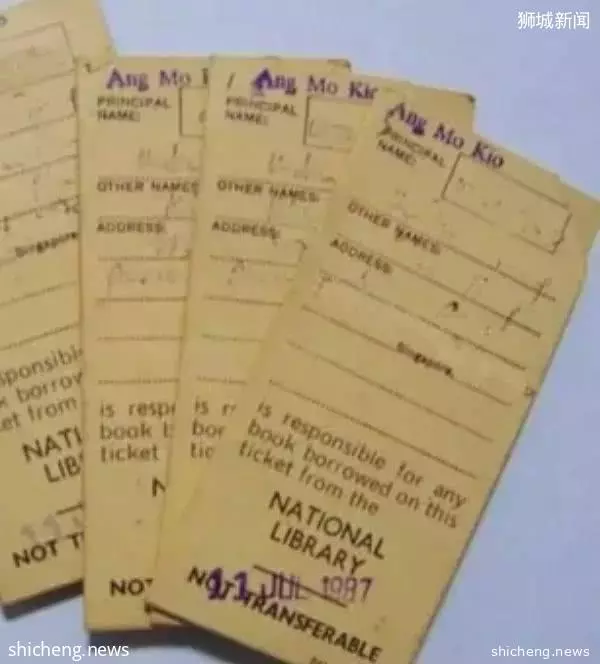 狮城新闻
Singapore
sponsibl
k borrow
et from
NATI
LIB
NOT T
Ang Mo
PRINCIPAL
NAME:
OTHER NAMES
ADDRESS:
is resp
book b
ticket
N
NOT
Ang Mo Kio
PRINCIPAL
NAME:
OTHER NAMES:
ADDRESS:
is r
bor
tic
Ang Mo Kio
PRINCIPAL
NAME:
OTHER NAMES:
ADDRESS:
Singapore
is responsible for any
book borrowed on this
ticket from the
NATIONAL
LIBRARY
11 JUL 1987
NOT TRANSFERABLE
shicheng.news
shicheng.news